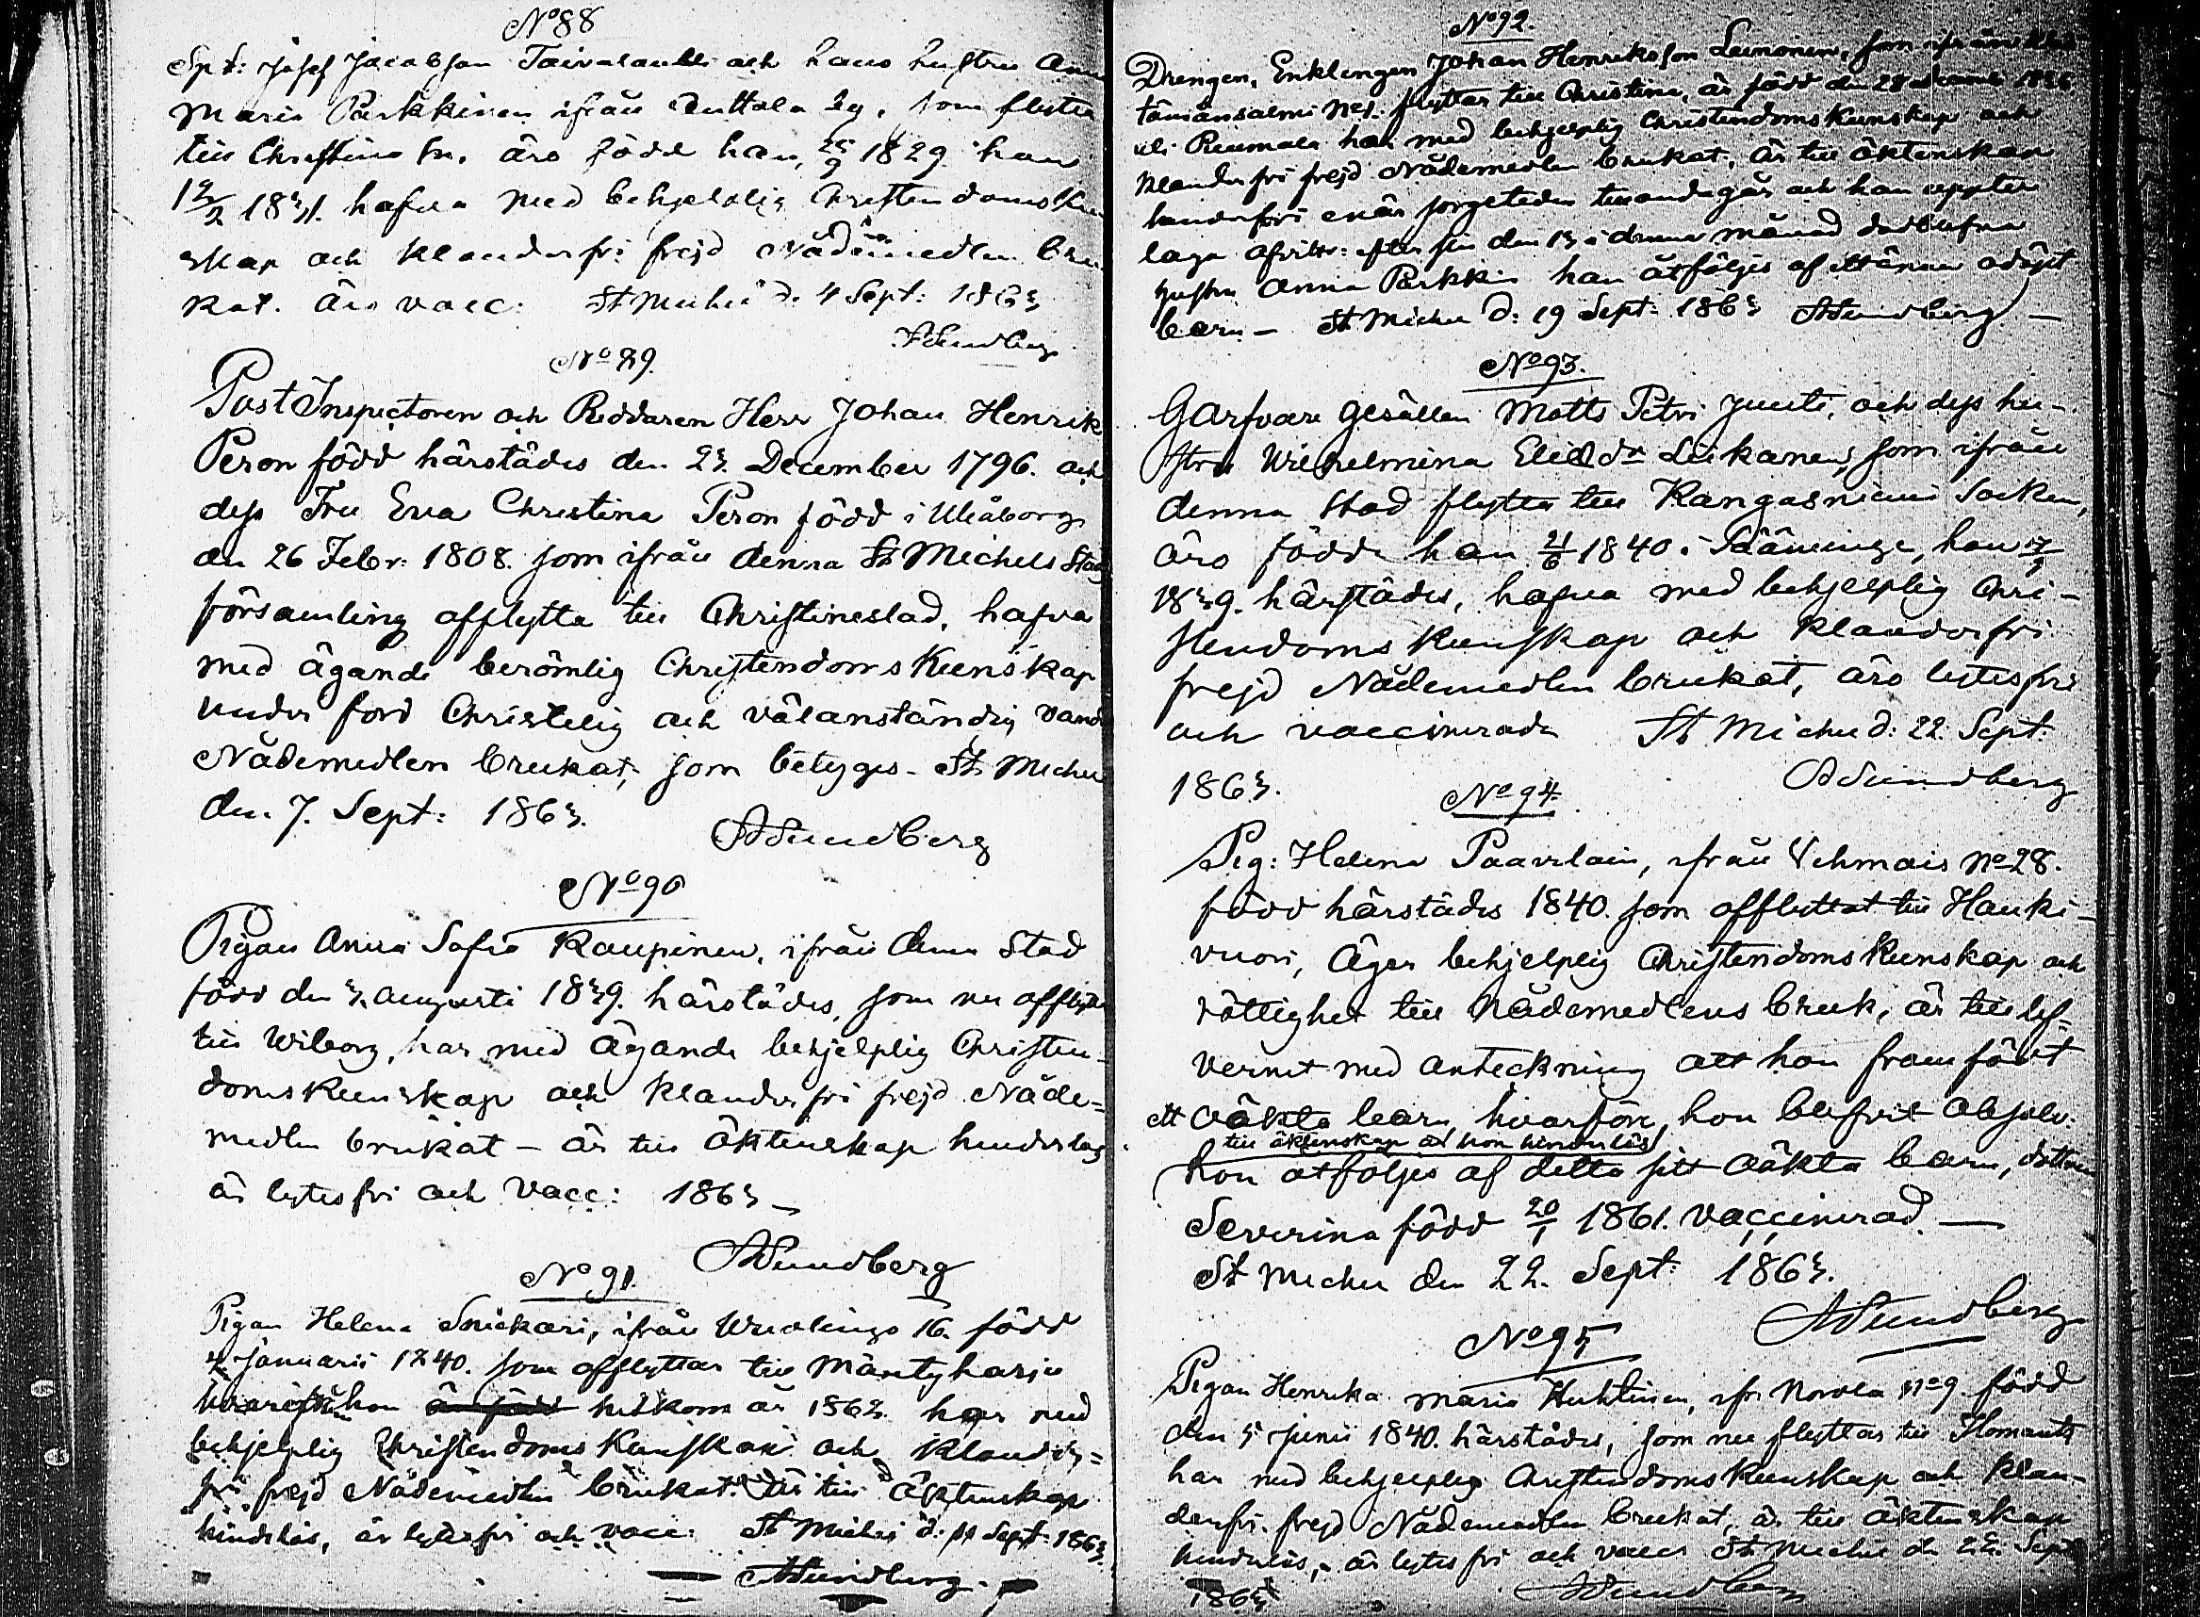 No 88
Spt: Josef Jacobsson Taivalantti och hans hustru Anna
Maria Parkkinen ifrån Anttola By, som flytta
till Christina Sn. äro född han, 25/9 1829. hon
12/2 1831. hafva med behjelplig Christendomskun
skap och klanderfri frejd Nådemedlen bru
kat. Äro vacc: St Michel d. 4 Sept: 1863
ASundberg
No 89.
Post Inspectoren och Riddaren Herr Johan Henrik
Peron född härstädes den 23. December 1796. och
dess Fru Eva Christina Peron född i Uleåborg
den 26 Febr: 1808. som ifrån denna St Michels Stads
församling afflytta till Christinestad, hafva
med ägande berömlig Christendoms Kunskap
under förd Christelig och välanständig vandel
Nådemedlen brukat, som betygas. St Michel
den 7. Sept: 1863.
ASundberg
No 90
Pigan Anna Sofia Kaupinen, ifrån denna Stad
född den 3. augusti 1839. härstädes, som nu afflytta
till Wiborg, har med ägande behjelplig Christen-
domskunskap och klanderfri frejd Nåde=
medlen brukat – är till äktenskap hinderlös
är lytesfri och vacc: 1863 –
ASundberg
No 91.
Pigan Helena Snickari, ifrån 16. född
4 Januarii 1840. som afflyttar till Mäntyharju
hvarifrån hon hitkom år 1862. har med
behjelplig Christendoms Kunskap och klander=
fri frejd Nådemedlen brukat. är till äktenskap
hinderlös, är lytesfri och vacc: St Michel d: 11 Sept: 1863.
ASundberg.
No 92.
Drengen, Enklingen Johan Henriksson Leinonen, som ifrån
No 1. flyttar till Christina, är född den 28 december 1826
uti har med behjelplig Christendoms Kunskap och
klanderfri frejd Nådemedlen brukat, är till äktenskap
hinderfri enär sorgetiden tilländagår och han uppte
laga afvittr: efter sin den 13 i denna månad dödblefna
hustru Anna Parkki han åtföljes af
barn – St Michel d: 19 Sept: 1863 ASundberg –
No 93.
Garfvare Gesällen Matts Petri Juuti, och dess hu-
stru Wilhelmina Eliedr Liikanen, som ifrån
denna Stad flytta till Kangasniemi Socken,
äro födde han 21/6 1840 i , hon 17/9
1839. härstädes, hafva med behjelplig Chri-
stendoms kunskap och klanderfri
frejd Nådemedlen brukat, äro lytesfri
och vaccinerade St Michel d: 22 Sept:
1863. ASundberg
No 94.
Pig: Helena Paavilain, ifrån Vehmais No 28.
född härstädes 1840. som afflyttat till Hauki-
vuori, äger behjelplig Christendoms Kunskap och
rättighet till Nådemedlens bruk, är till lef-
vernet med anteckning att hon framfödt
ett oäkta barn, hvarföre hon blifvit absolv:
till äktenskap är hon hinderlös
hon åtföljes af detta sitt oäkta barn, dottren
Severina född 20/1 1861. vaccinerad. —
St Michel den 22. Sept: 1863.
ASundberg
No 95
Pigan Henrika Maria Huhtinen, ifr: Norola No 9. född
den 5 Junii 1840. härstädes, som nu flyttar till Ilomants
har med behjelplig Christendoms Kunskap och klan-
derfri frejd Nådemedlen brukat, är till äktenskap
hinderlös, är lytesfri och vacc: St Michel d. 22. Sept
1863 ASundberg